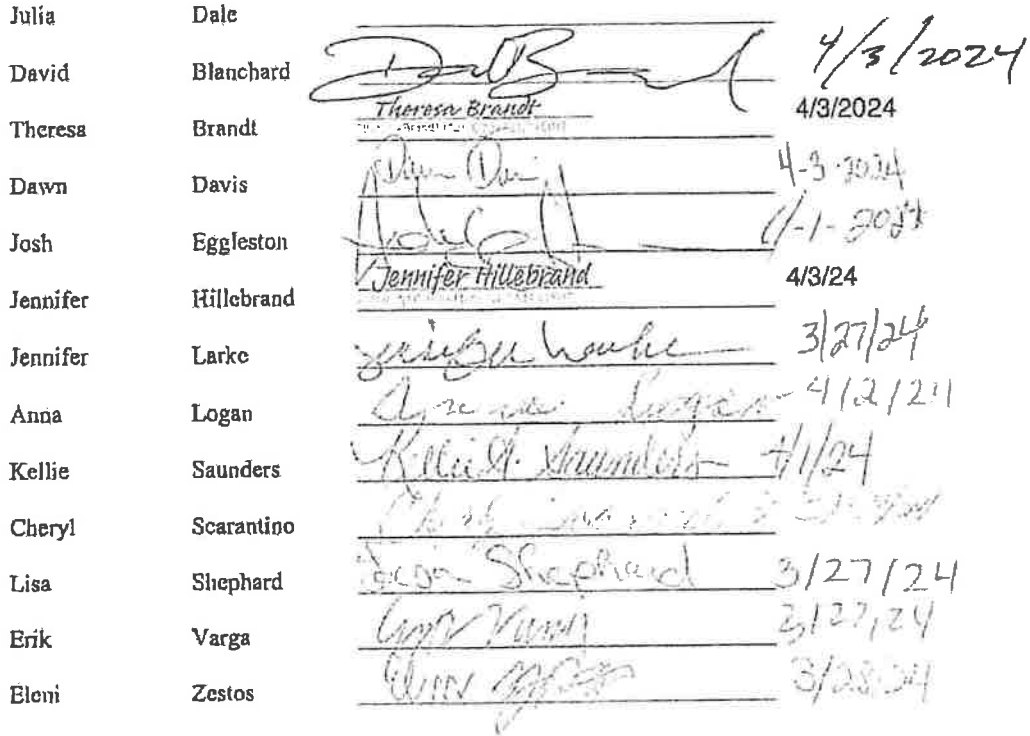 Julia Dale
David Blanchard 4/3/2024
Theresa Brandt Theresa Brandt 4/3/2024
Dawn Davis Dawn Davis 4-3-2024
Josh Eggleston
Jennifer Hillebrand Jennifer Hillebrand 4/3/24
Jennifer Larke Jennifer Larke 3/27/24
Anna Logan Logan 4/2/24
Kellie Saunders Kellie A. Saunders 4/1/24
Cheryl Scarantino
Lisa Shephard Lisa Shephard 3/27/24
Erik Varga 3/27/24
Eleni Zestos 3/28/24